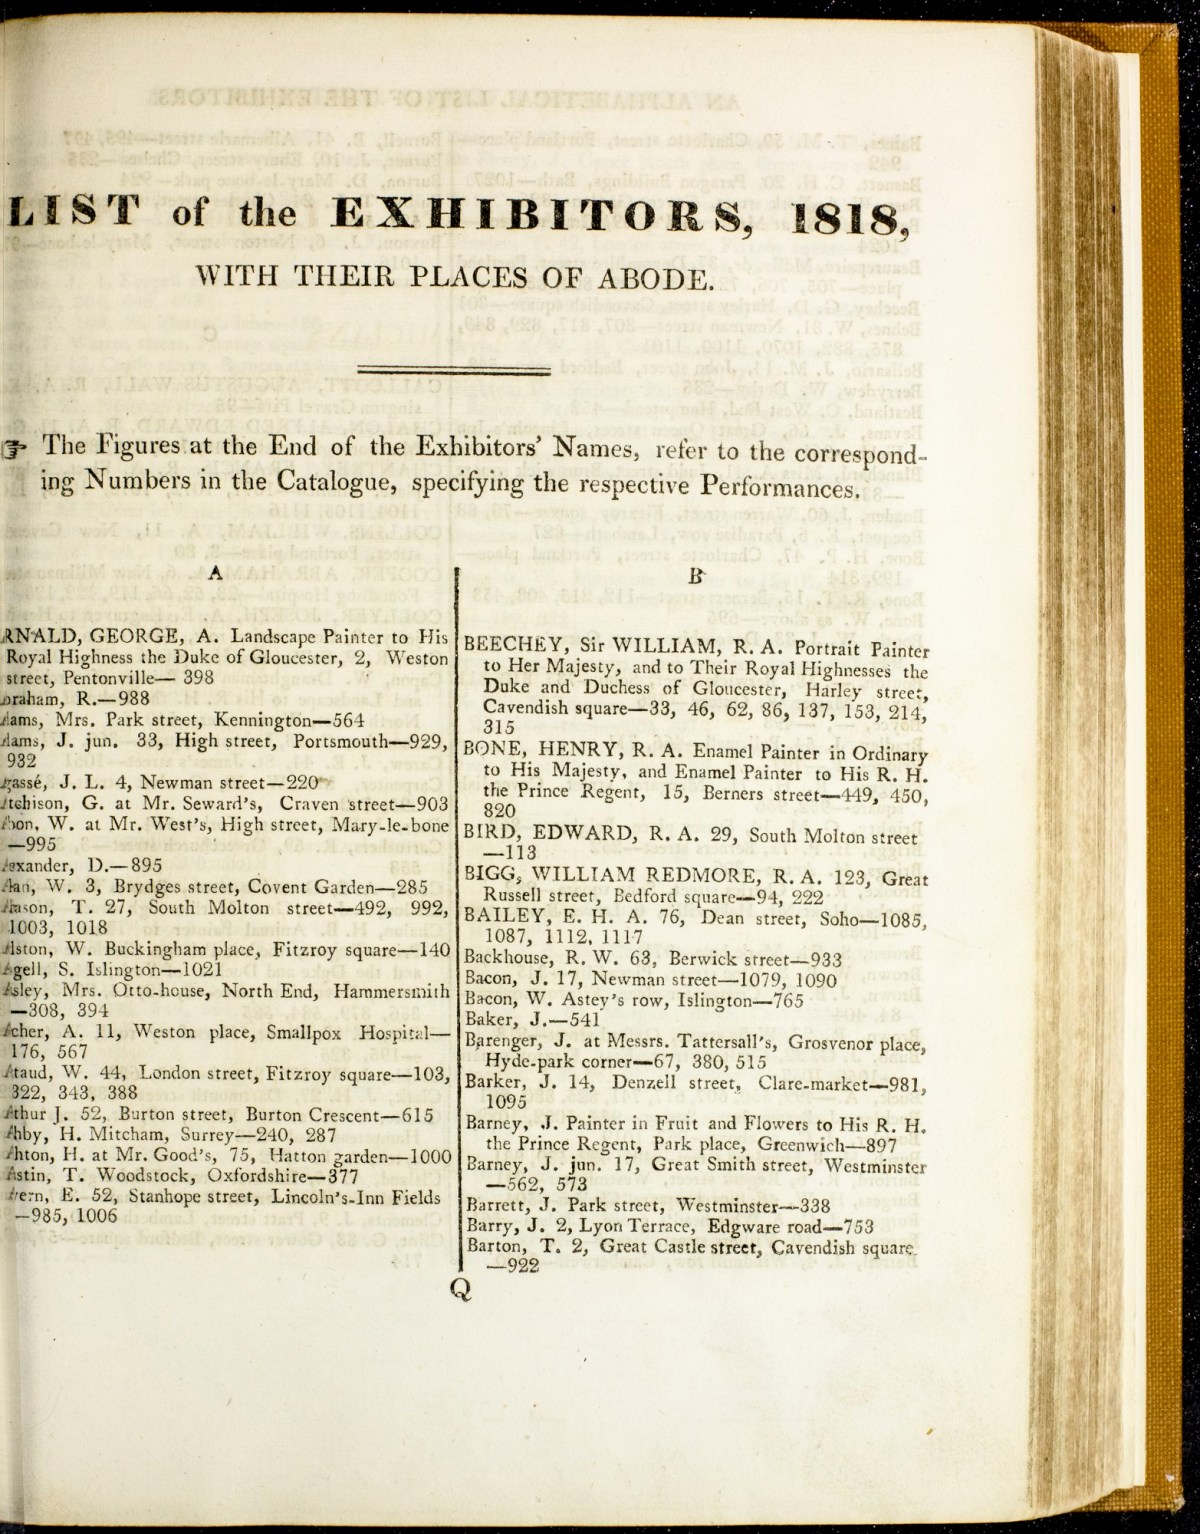 LIST of the EXHIBITORS, 1818,
WITH THEIR PLACES OF ABODE.
☞ The Figures at the End of the Exhibitors' Names, refer to the correspond-
ing Numbers in the Catalogue, specifying the respective Performances.
A
RNALD, GEORGE, A. Landscape Painter to His
Royal Highness the Duke of Gloucester, 2, Weston
street, Pentonville— 398
braham, R.—988
dams, Mrs. Park street, Kennington—564
dams, J. jun. 33, High street, Portsmouth—929,
932
gassé, J. L. 4, Newman street—220
itchison, G. at Mr. Seward's, Craven street—903
W. at Mr. West's, High street, Mary-le-bone
—995
lexander, D.—895
W. 3, Brydges street, Covent Garden—285
T. 27, South Molton street—492, 992,
1003, 1018
lston, W. Buckingham place, Fitzroy square—140
gell, S. Islington—1021
sley, Mrs. Otto-house, North End, Hammersmith
—308, 394
cher, A. 11, Weston place, Smallpox Hospital—
176, 567
taud, W. 44, London street, Fitzroy square—103,
322, 343, 388
thur J. 52, Burton street, Burton Crescent—615
hby, H. Mitcham, Surrey—240, 287
hton, H. at Mr. Good's, 75, Hatton garden—1000
stin, T. Woodstock, Oxfordshire—377
E. 52, Stanhope street, Lincoln's-Inn Fields
—985, 1006
B
BEECHEY, Sir WILLIAM, R. A. Portrait Painter
to Her Majesty, and to Their Royal Highnesses the
Duke and Duchess of Gloucester, Harley street,
Cavendish square—33, 46, 62, 86, 137, 153, 214,
315
BONE, HENRY, R. A. Enamel Painter in Ordinary
to His Majesty, and Enamel Painter to His R. H.
the Prince Regent, 15, Berners street—449, 450,
820
BIRD, EDWARD, R. A. 29, South Molton street
—113
BIGG, WILLIAM REDMORE, R. A. 123, Great
Russell street, Bedford square—94, 222
BAILEY, E. H. A. 76, Dean street, Soho—1085,
1087, 1112, 1117
Backhouse, R. W. 63, Berwick street—933
Bacon, J. 17, Newman street—1079, 1090
Bacon, W. Astey's row, Islington—765
Baker, J.—541
Barenger, J. at Messrs. Tattersall's, Grosvenor place,
Hyde-park corner—67, 380, 515
Barker, J. 14, Denzell street, Clare-market—981,
1095
Barney, J. Painter in Fruit and Flowers to His R. H.
the Prince Regent, Park place, Greenwich—897
Barney, J. jun. 17, Great Smith street, Westminster
—562, 573
Barrett, J. Park street, Westminster—338
Barry, J. 2, Lyon Terrace, Edgware road—753
Barton, T. 2, Great Castle street, Cavendish square
—922
Q